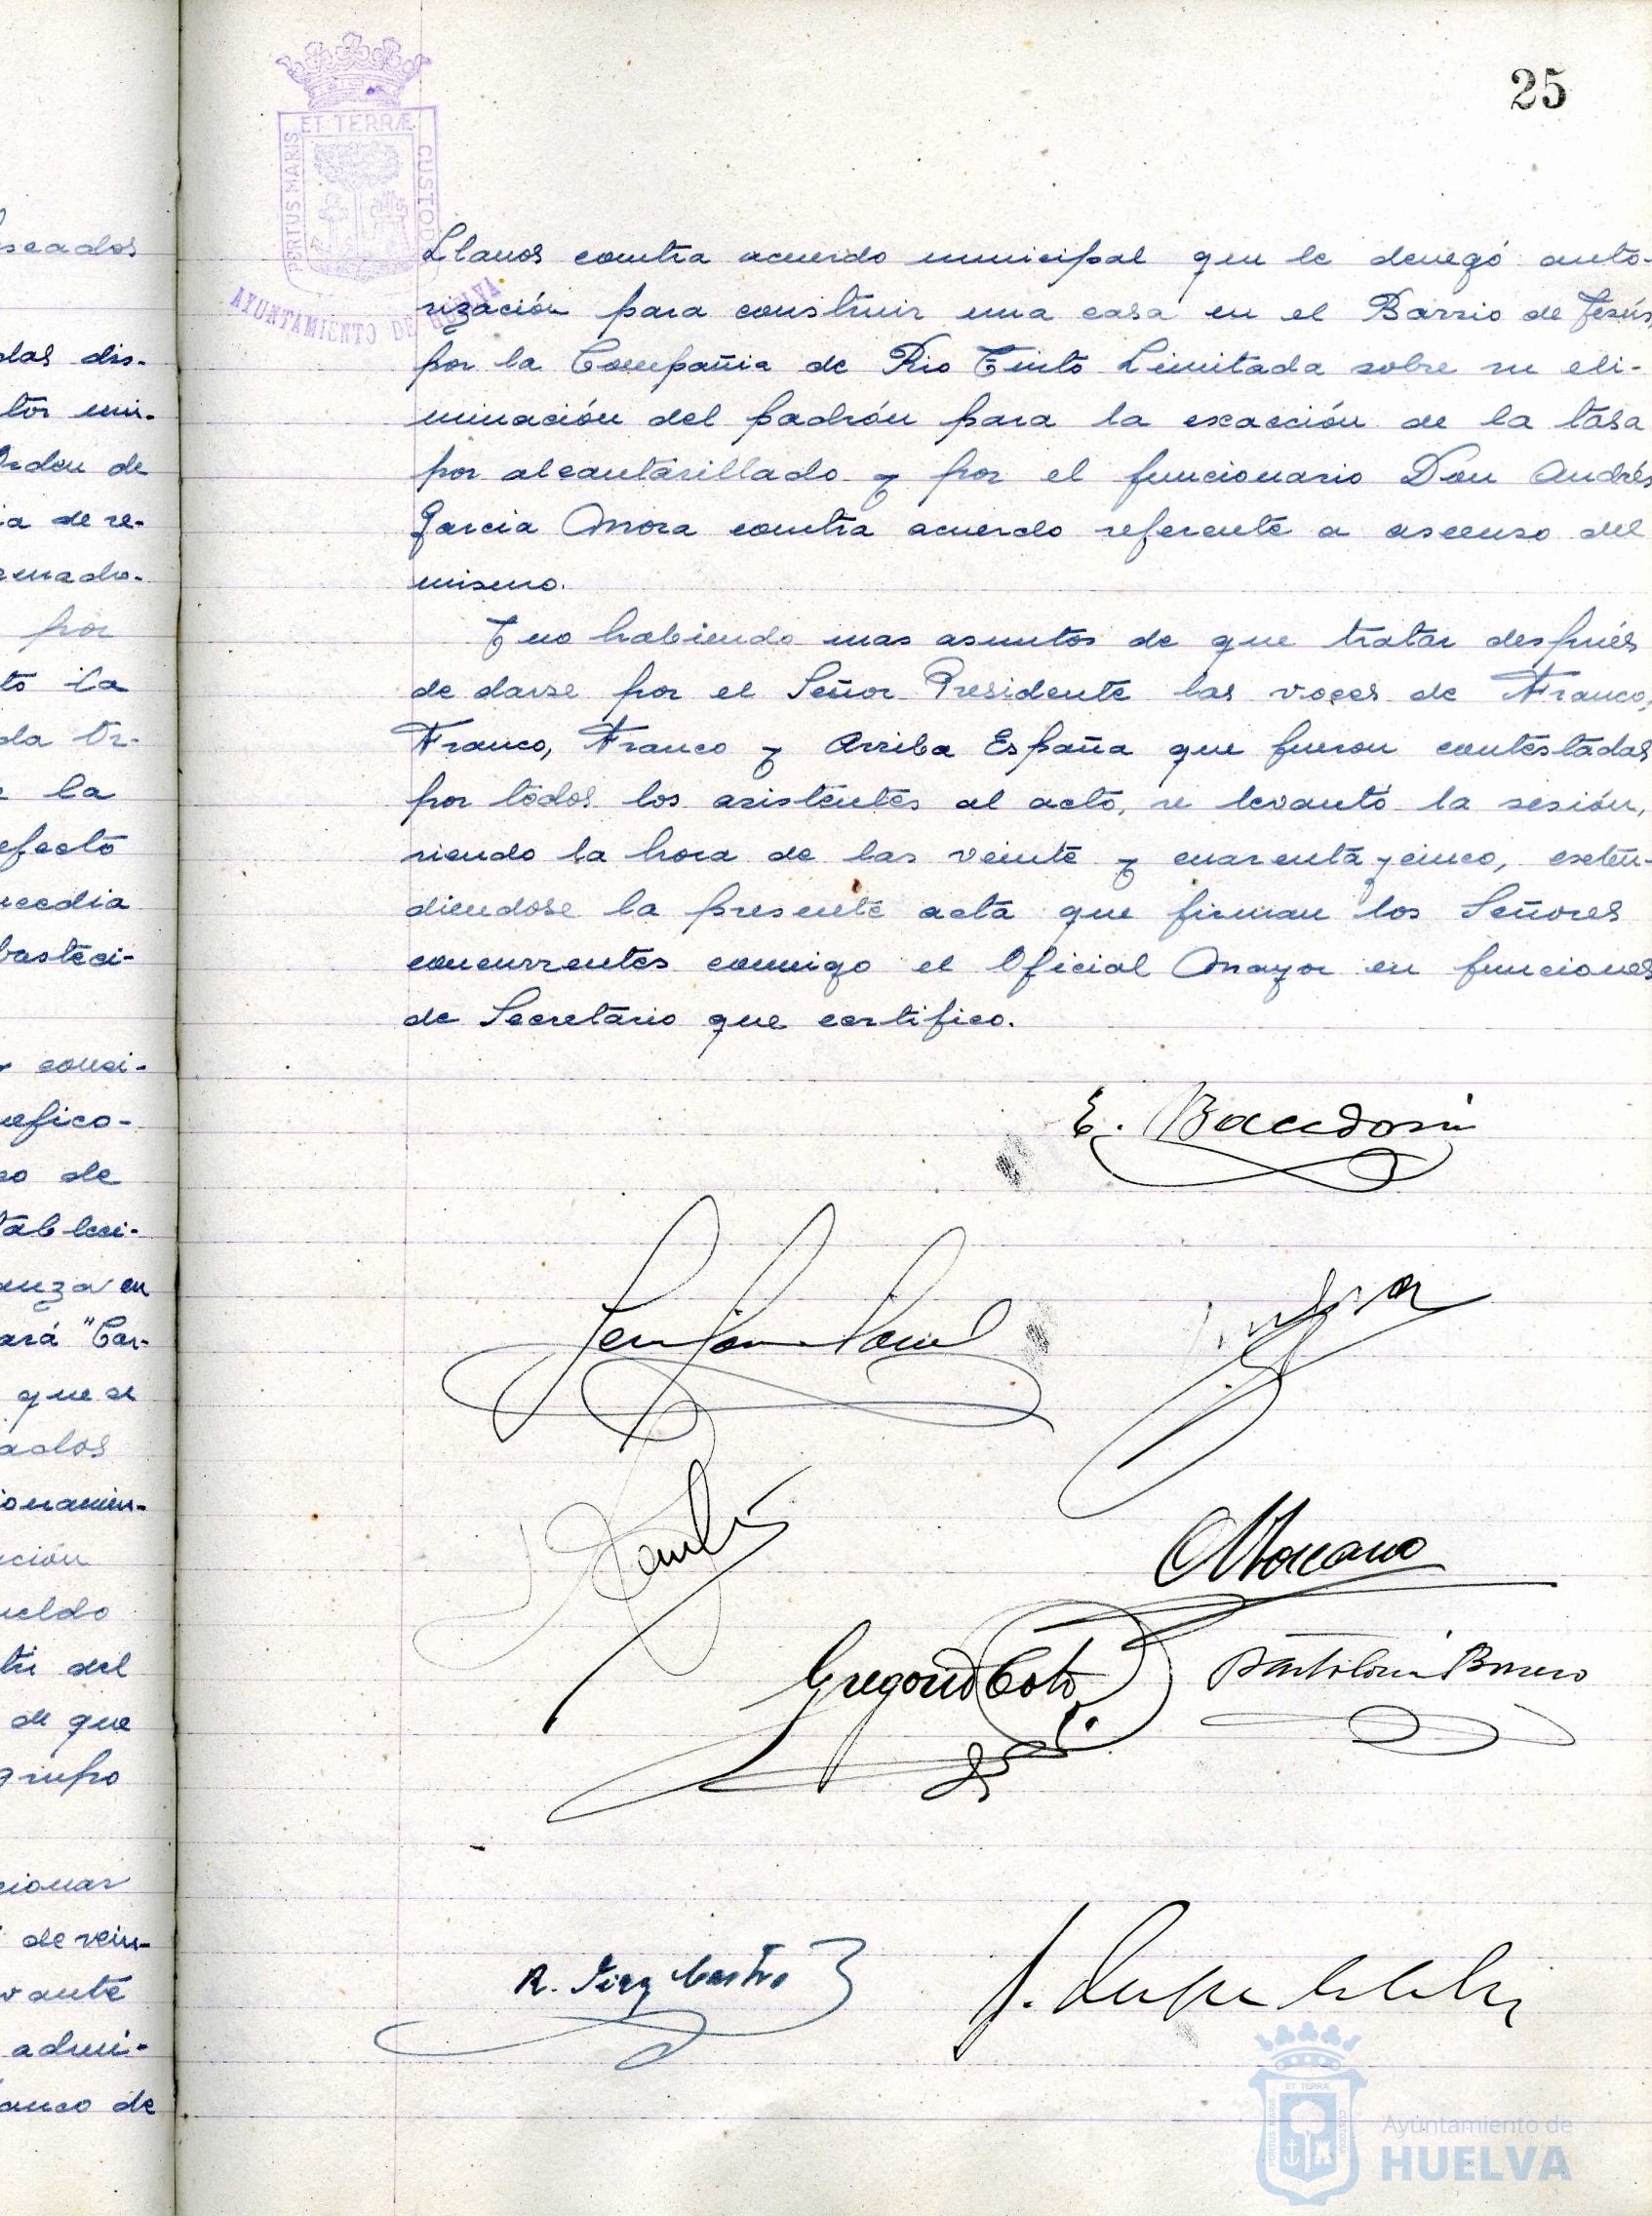 25
ET TERRÆ
PORTUS MARIS
CUSTOD
AYUNTAMIENTO DE HUELVA
Llanos contra acuerdo municipal que le denegó auto-
rización para construir una casa en el Barrio de Jesús
por la Compañia de Rio Tinto Limitada sobre su eli-
minación del padrón para la exacción de la tasa
por alcantarillado y por el funcionario Don Andrés
Garcia Mora contra acuerdo referente a ascenso del
mismo.
Y no habiendo mas asuntos de que tratar después
de darse por el Señor Presidente las voces de Franco,
Franco, Franco y Arriba España que fueron contestadas
por todos los asistentes al acto, se levantó la sesión,
siendo la hora de las veinte y cuarenta y cinco, exten-
diendose la presente acta que firman los Señores
concurrentes conmigo el Oficial Mayor en funciones
de Secretario que certifico.
E.
Gregorio Coto
R. Castro
seados
das dis-
Orden de
ia de re-
por
to la
da Or-
la
efecto
basteci-
so de
tableci-
anza en
ará "Car-
que se
ados
ción
ueldo
del
de que
grupo
cionar
de vein-
admi-
de
ET TERRÆ
PORTUS MARIS
CUSTODIA
Ayuntamiento de
HUELVA